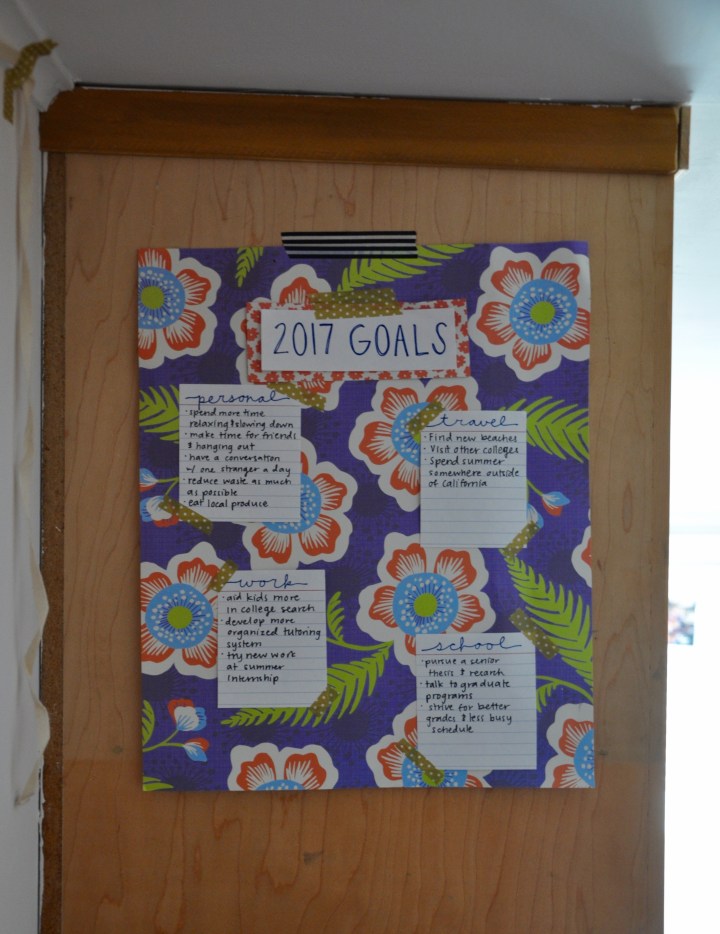 2017 GOALS
personal
· spend more time
relaxing & slowing down
· make time for friends
& hanging out
· have a conversation
w/ one stranger a day
· reduce waste as much
as possible
· eat local produce
travel
· Find new beaches
· Visit other colleges
· Spend summer
somewhere outside
of California
work
· aid kids more
in college search
· develop more
organized tutoring
system
· try new work
at summer
internship
school
· pursue a senior
thesis & rearch
· talk to graduate
programs
· strive for better
grades & less busy
schedule